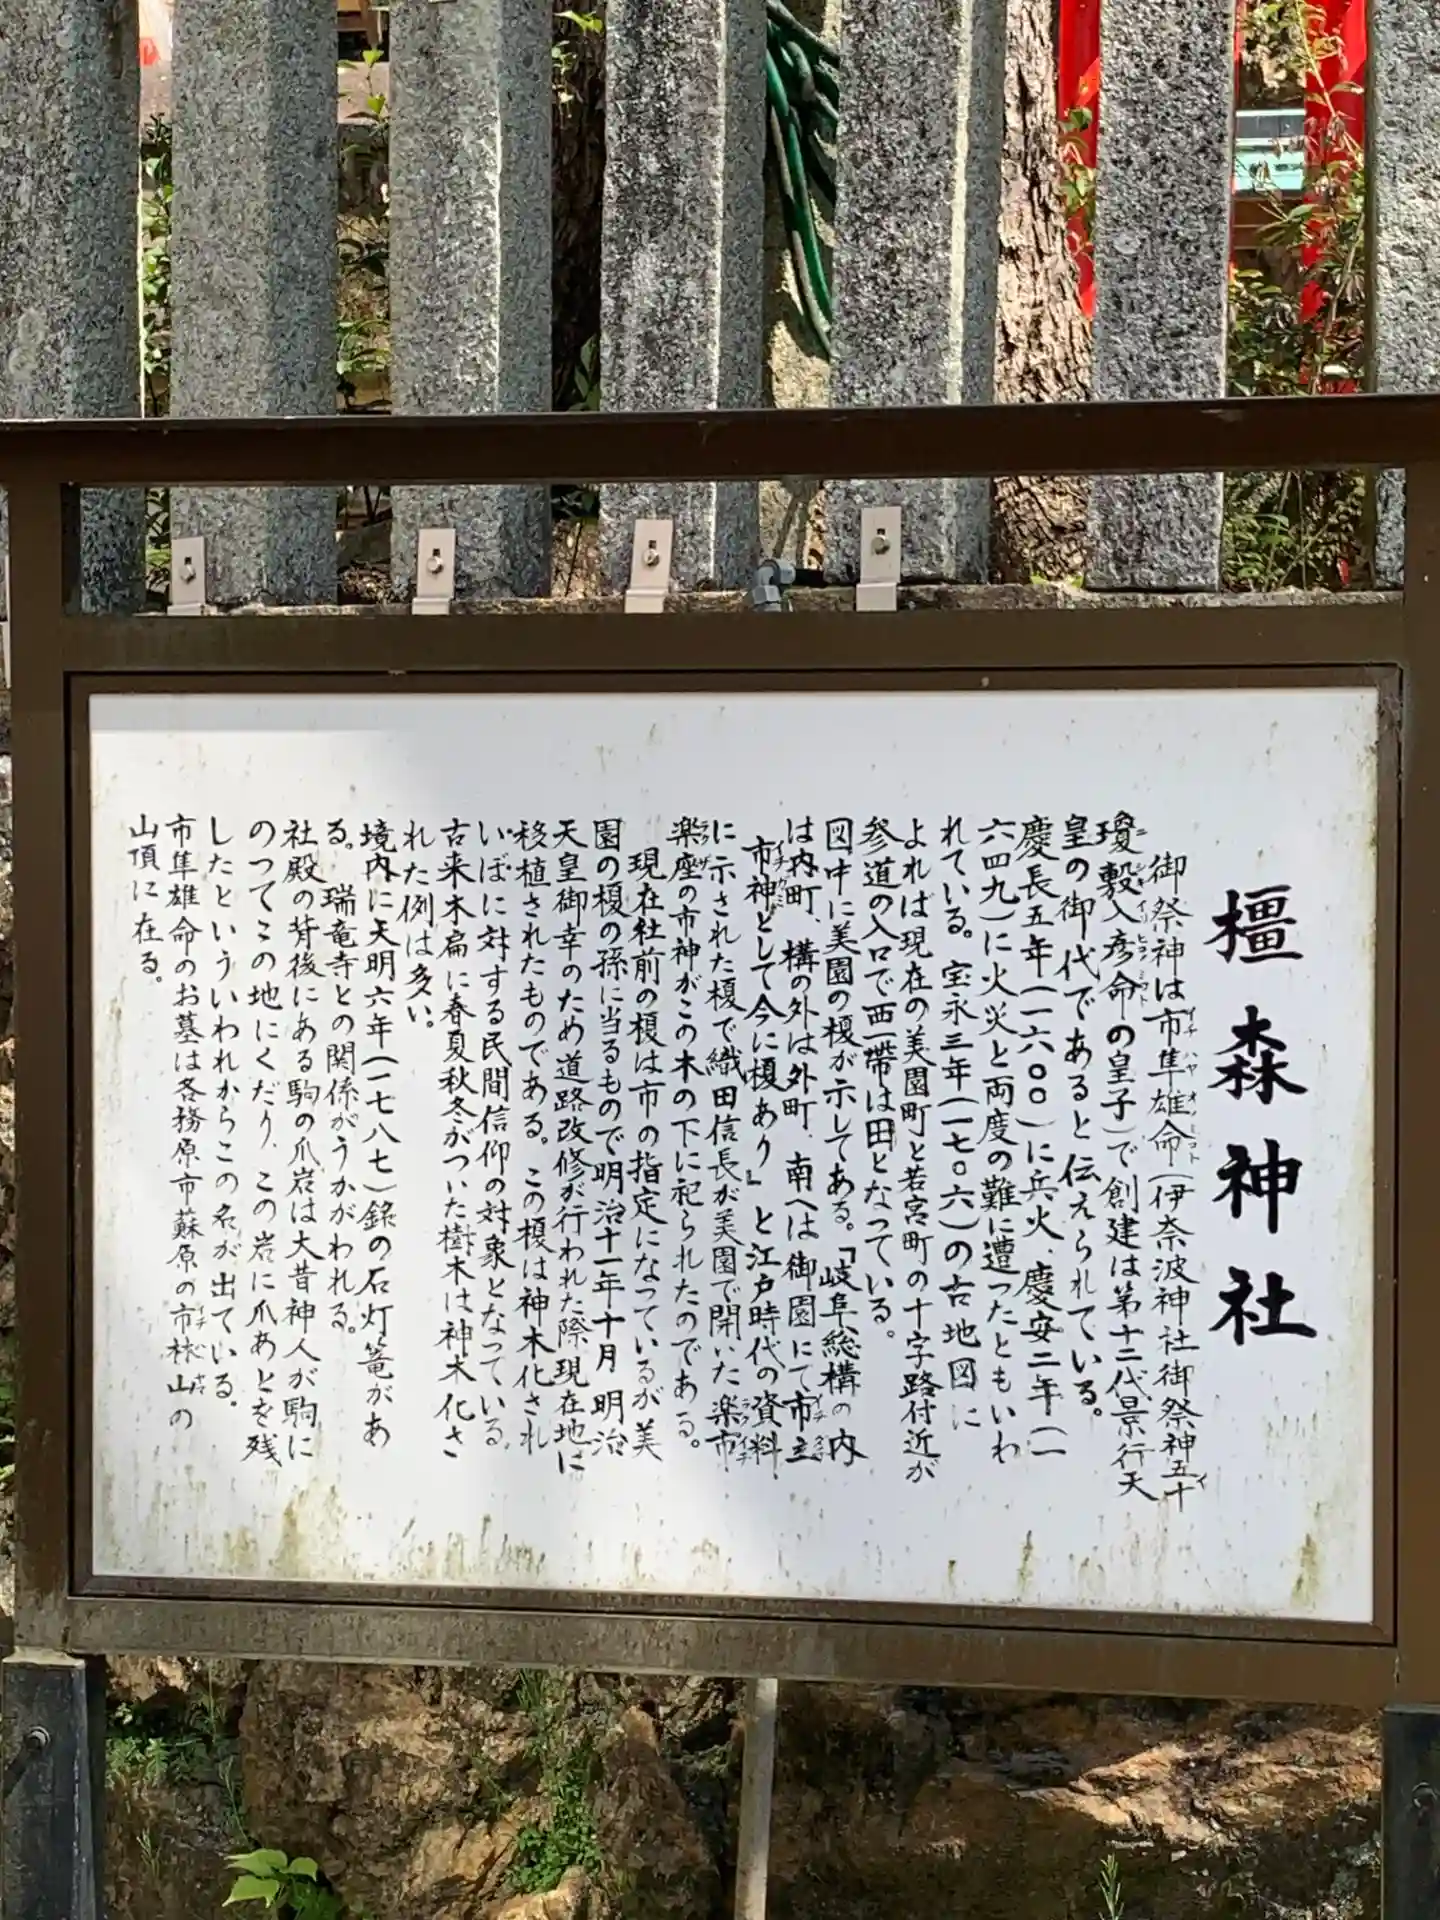 橿森神社
御祭神は市隼雄命(伊奈波神社御祭神五十
瓊敷入彦命の皇子)で創建は第十二代景行天
皇の御代であると伝えられている。
慶長五年(一六〇〇)に兵火、慶安二年(一
六四九)に火災と両度の難に遭つたともいわ
れている。宝永三年(一七〇六)の古地図に
よれば現在の美園町と若宮町の十字路付近が
参道の入口で西一帯は田となつている。
図中に美園の榎が示してある。「岐阜総構の内
は内町、構の外は外町、南へは御園にて市立
市神として今に榎あり」と江戸時代の資料
に示された榎で織田信長が美園で開いた楽市
楽座の市神がこの木の下に祀られたのである。
現在社前の榎は市の指定になつているが美
園の榎の孫に当るもので明治十一年十月明治
天皇御幸のため道路改修が行われた際現在地に
移植されたものである。この榎は神木化され
いぼに対する民間信仰の対象となつている。
古来木扁に春夏秋冬がついた樹木は神木化さ
れた例は多い。
境内に天明六年(一七八七)銘の石灯篭があ
る。瑞竜寺との関係がうかがわれる。
社殿の背後にある駒の爪岩は大昔神人が駒に
のつてこの地にくだり、この岩に爪あとを残
したといういわれからこの名が出ている。
市隼雄命のお墓は各務原市蘇原の市林山の
山頂に在る。